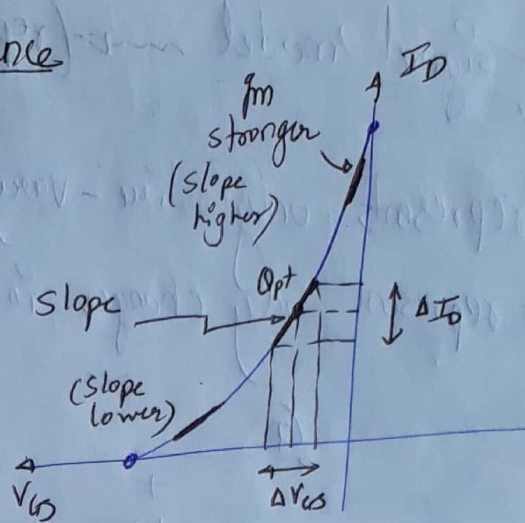 nce
I_D
gm
stronger
(slope
higher)
Qpt
Slope
ΔI_D
(slope
lower)
V_GS
ΔV_GS